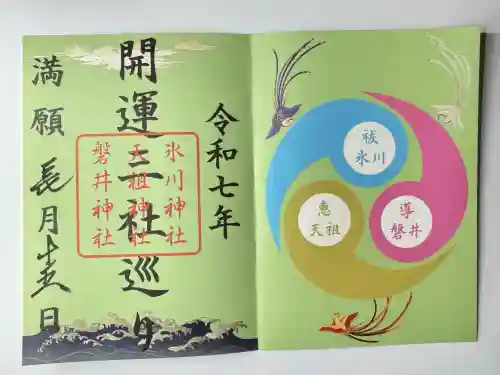 令和七年
開運三社巡り
満願 長月十五日
氷川神社
天祖神社
磐井神社
祓
氷川
恵
天祖
導
磐井